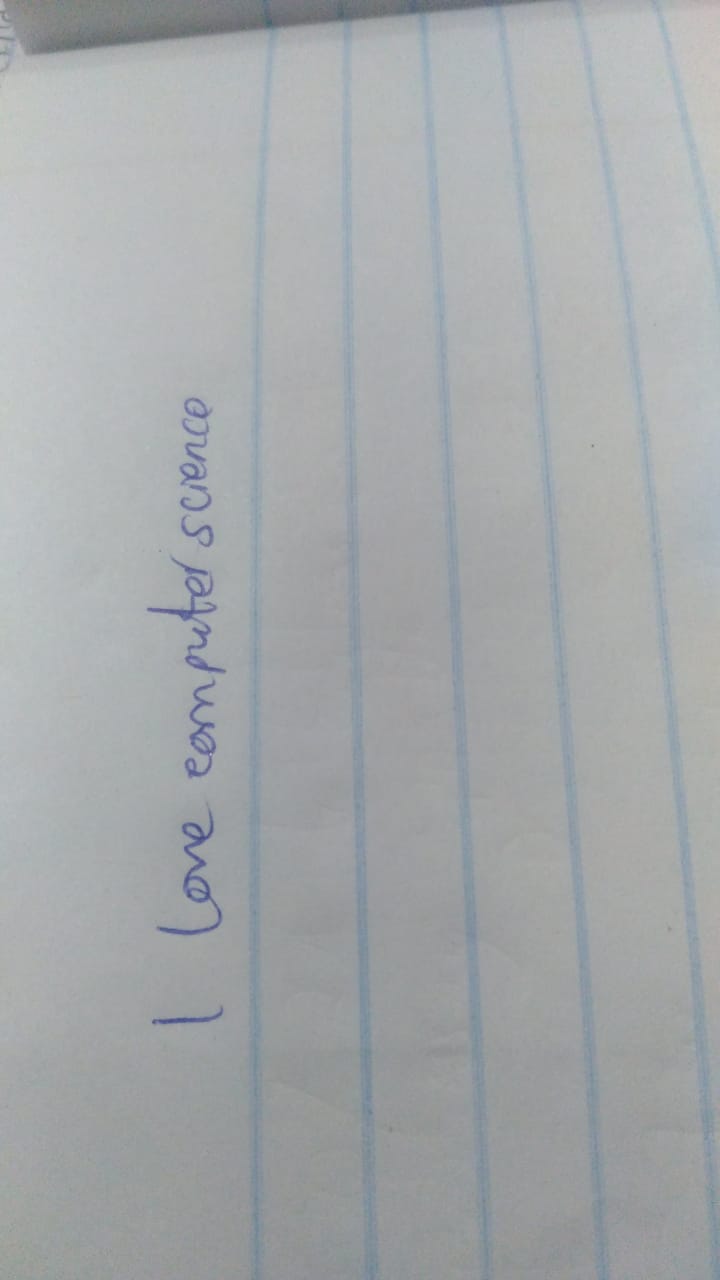 I Love computer science